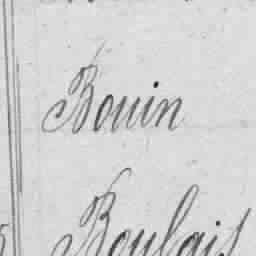 Bouin
Boulais